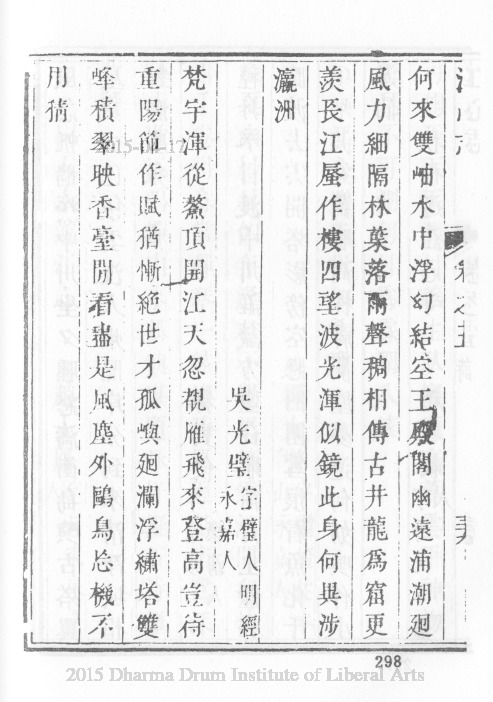 卷之五
何來雙岫水中浮幻結空王殿閣幽遠浦潮廻
風力細隔林葉落雨聲稠相傳古井龍爲窟更
羨長江蜃作樓四望波光渾似鏡此身何異涉
瀛洲
吳光璧字璧人明經
永嘉人
梵宇渾從鰲頂開江天忽覩雁飛來登高豈待
重陽節作賦猶慚絕世才孤嶼廻瀾浮繡塔雙
峰積翠映香臺閒看盡是風塵外鷗鳥忘機不
用猜
298
2015 Dharma Drum Institute of Liberal Arts